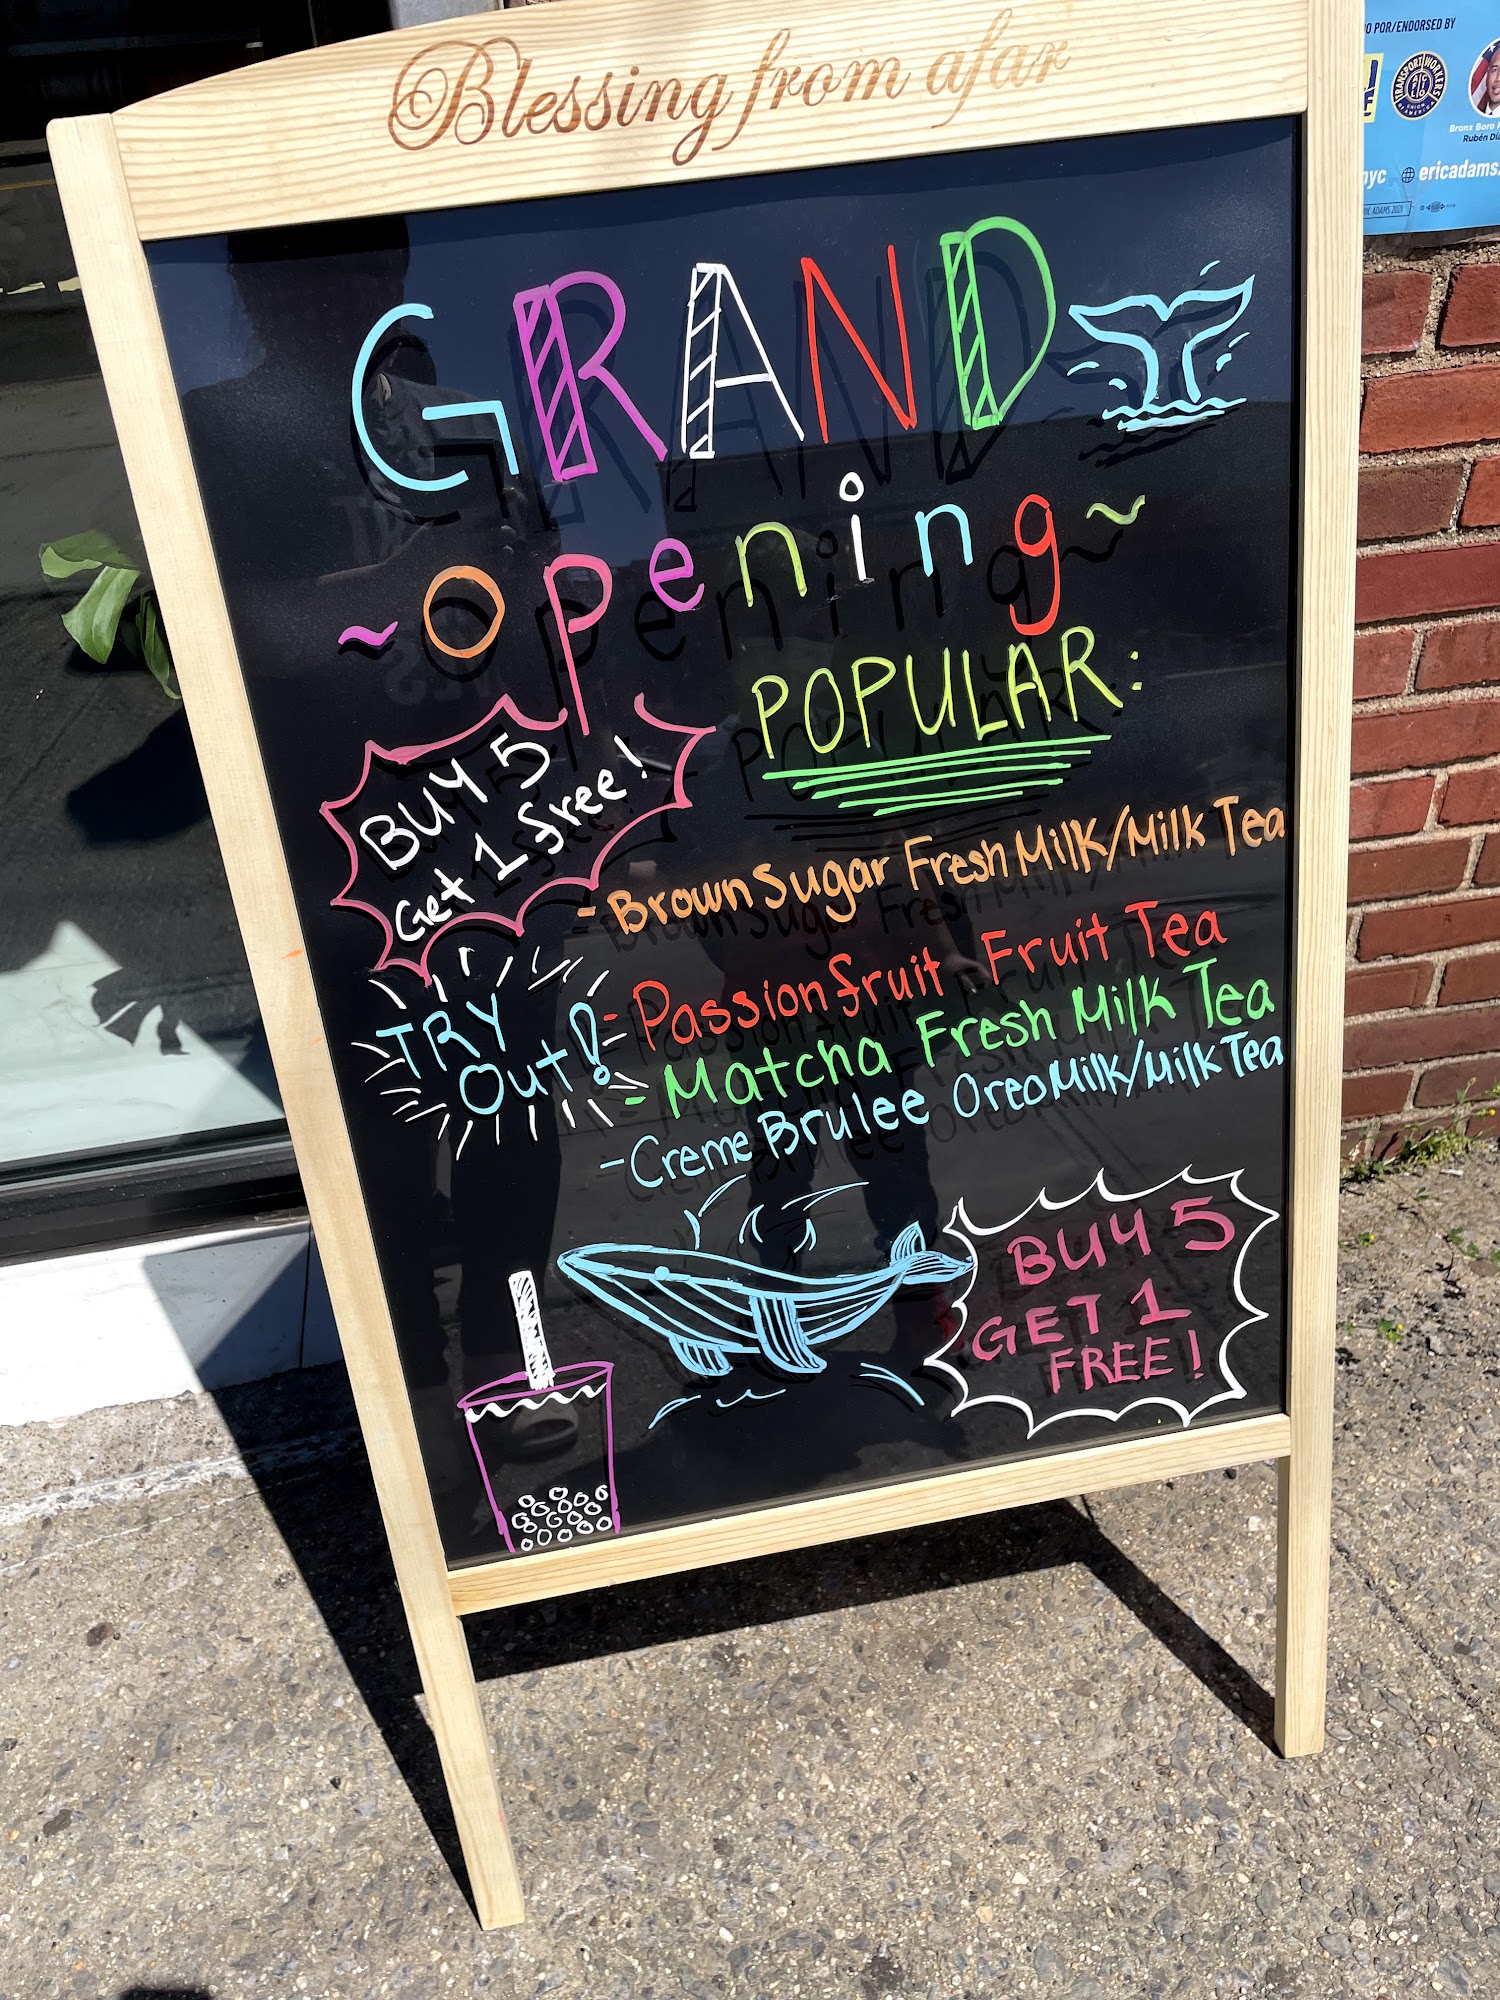 Blessing from afar
GRAND
~opening~
POPULAR:
BUY 5
Get 1 free!
- Brown Sugar Fresh Milk/Milk Tea
TRY
Out!
- Passion fruit Fruit Tea
- Matcha Fresh Milk Tea
- Creme Brulee Oreo Milk/Milk Tea
BUY 5
GET 1
FREE!
O POR/ENDORSED BY
TRANSPORT WORKERS
UNION
OF AMERICA
Bronx Boro
Rubén Día
nyc
ericadams
ADAMS 2021